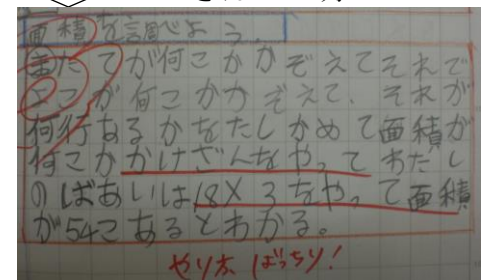 面積を調べよう。
またてが何こかかぞえてそれで
よこが何こかかぞえて、それが
何行あるかをたしかめて面積が
何こかかけざんをやってわたし
のばあいは18×3をやって面積
が54こあるとわかる。
やり方ばっちり!